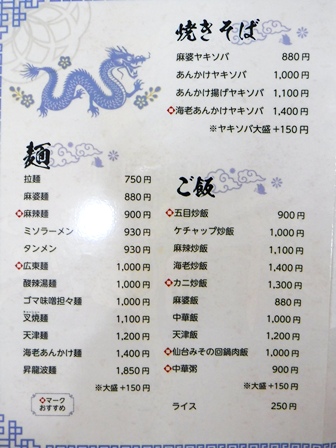 焼きそば
麻婆ヤキソバ 880円
あんかけヤキソバ 1,000円
あんかけ揚げヤキソバ 1,100円
海老あんかけヤキソバ 1,400円
※ヤキソバ大盛 +150円
麺
拉麺 750円
麻婆麺 880円
麻辣麺 900円
ミソラーメン 930円
タンメン 930円
広東麺 1,000円
酸辣湯麺 1,000円
ゴマ味噌担々麺 1,000円
叉焼麺 1,100円
天津麺 1,200円
海老あんかけ麺 1,400円
昇龍波麺 1,850円
※大盛 +150円
マーク
おすすめ
ご飯
五目炒飯 900円
ケチャップ炒飯 1,000円
麻辣炒飯 1,100円
海老炒飯 1,400円
カニ炒飯 1,300円
麻婆飯 880円
中華飯 1,000円
天津飯 1,200円
仙台みその回鍋肉飯 1,000円
中華粥 900円
※大盛 +150円
ライス 250円